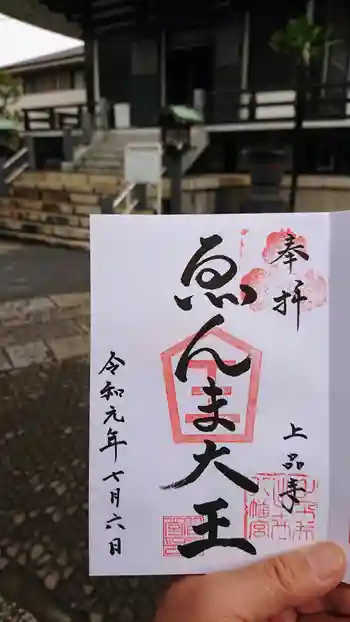 奉拝
上品寺
ゑんま大王
令和元年七月六日